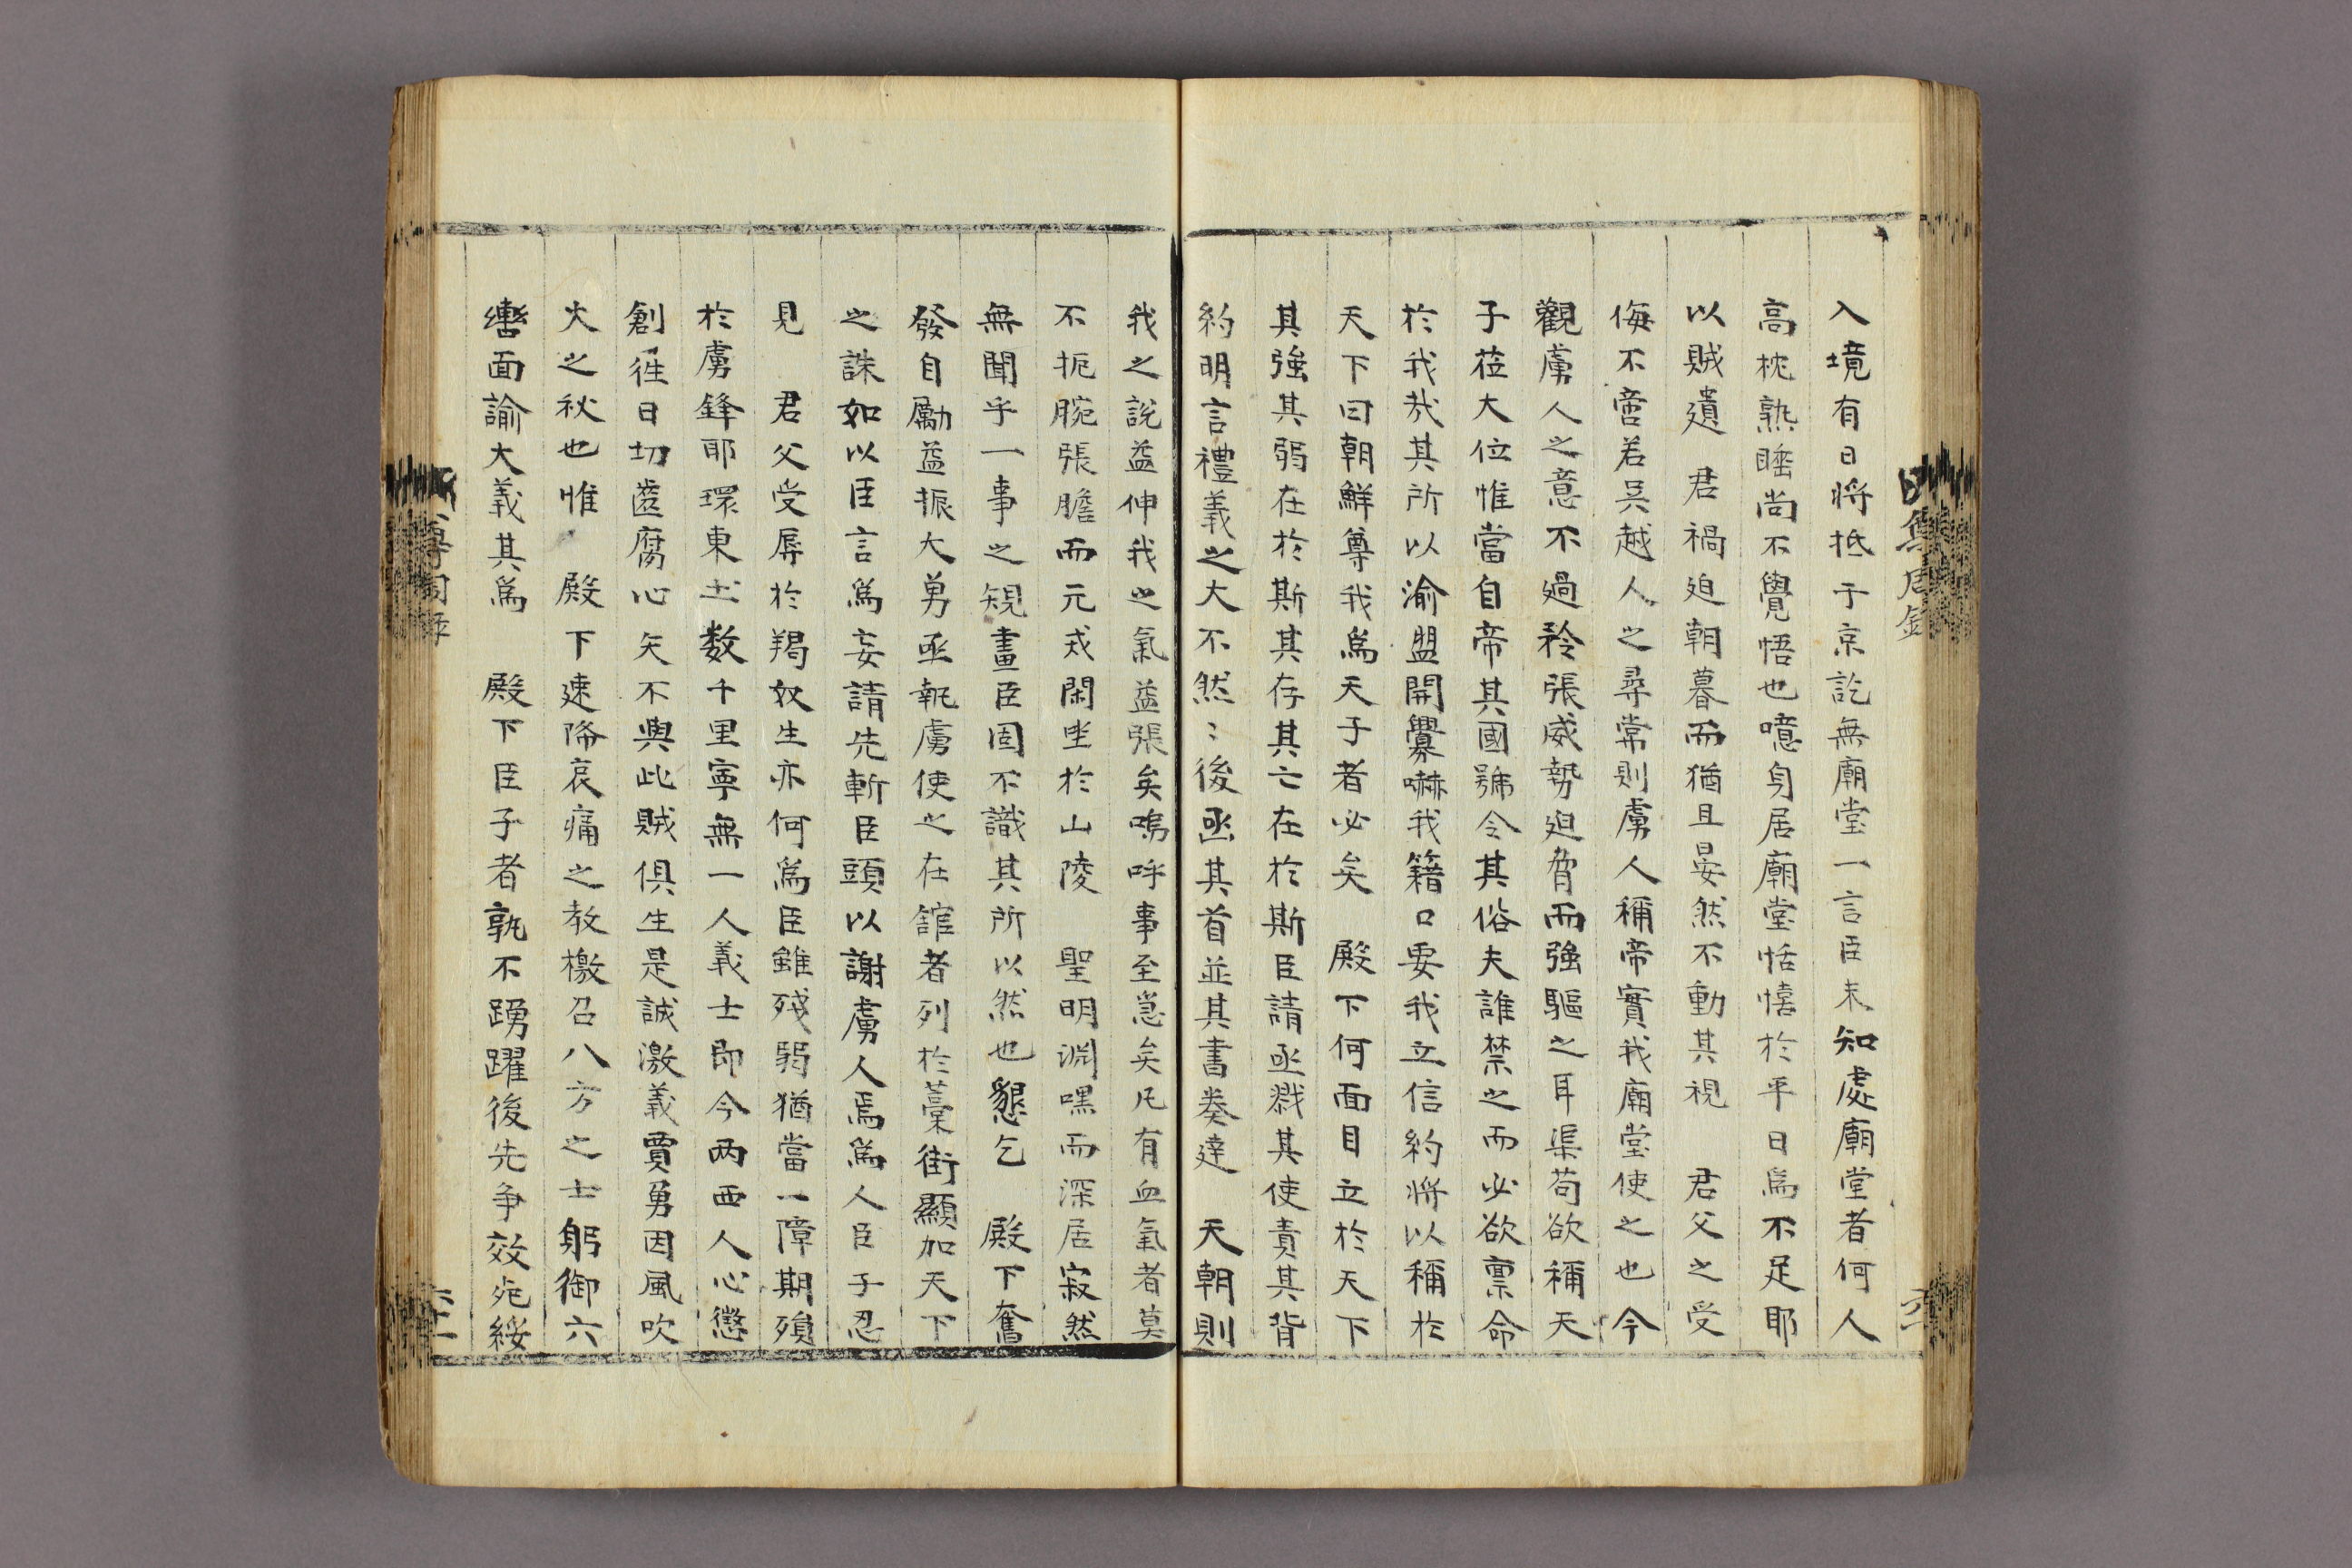 入境有日將抵于京訖無廟堂一言臣未知處廟堂者何人
高枕熟睡尚不覺悟也噫身居廟堂恬憘於平日爲不足耶
以賊遺 君禍迫朝暮而猶且晏然不動其視 君父之受
侮不啻若吴越人之尋常則虜人稱帝實我廟堂使之也今
觀虜人之意不過矜張威勢迫脅而強驅之耳渠苟欲稱天
子莅大位惟當自帝其國號令其俗夫誰禁之而必欲禀命
於我㢤其所以渝盟開釁嚇我籍口要我立信約將以稱於
天下曰朝鮮尊我爲天子者必矣 殿下何面目立於天下
其強其弱在於斯其存其亡在於斯臣請亟戮其使責其背
約明言禮義之大不然ː後函其首並其書奏達 天朝則
我之說益伸我之氣益張矣嗚呼事至急矣凡有血氣者莫
不扼腕張膽而元戎閑坐於山陵 聖明淵嘿而深居寂然
無聞乎一事之規畫臣固不識其所以然也懇乞 殿下奮
發自勵益振大勇亟執虜使之在舘者列於藁街顯加天下
之誅如以臣言爲妄請先斬臣頭以謝虜人焉爲人臣子忍
見 君父受辱於羯奴生亦何爲臣雖殘弱猶當一障期殞
於虜鋒耶環東土數千里寧無一人義士即今两西人心懲
創徃日切齒腐心矢不與此賊俱生是誠激義賈勇因風吹
火之秋也惟 殿下速降哀痛之教檄召八方之士躬御六
轡面諭大義其爲 殿下臣子者孰不踴躍後先争效死綏